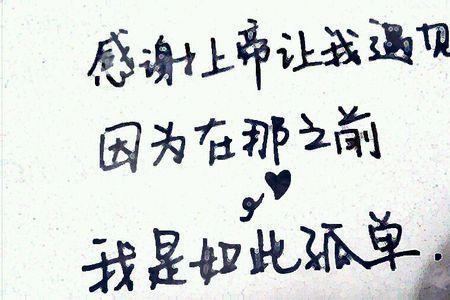 感谢上帝让我遇见
因为在那之前
我是如此孤单.